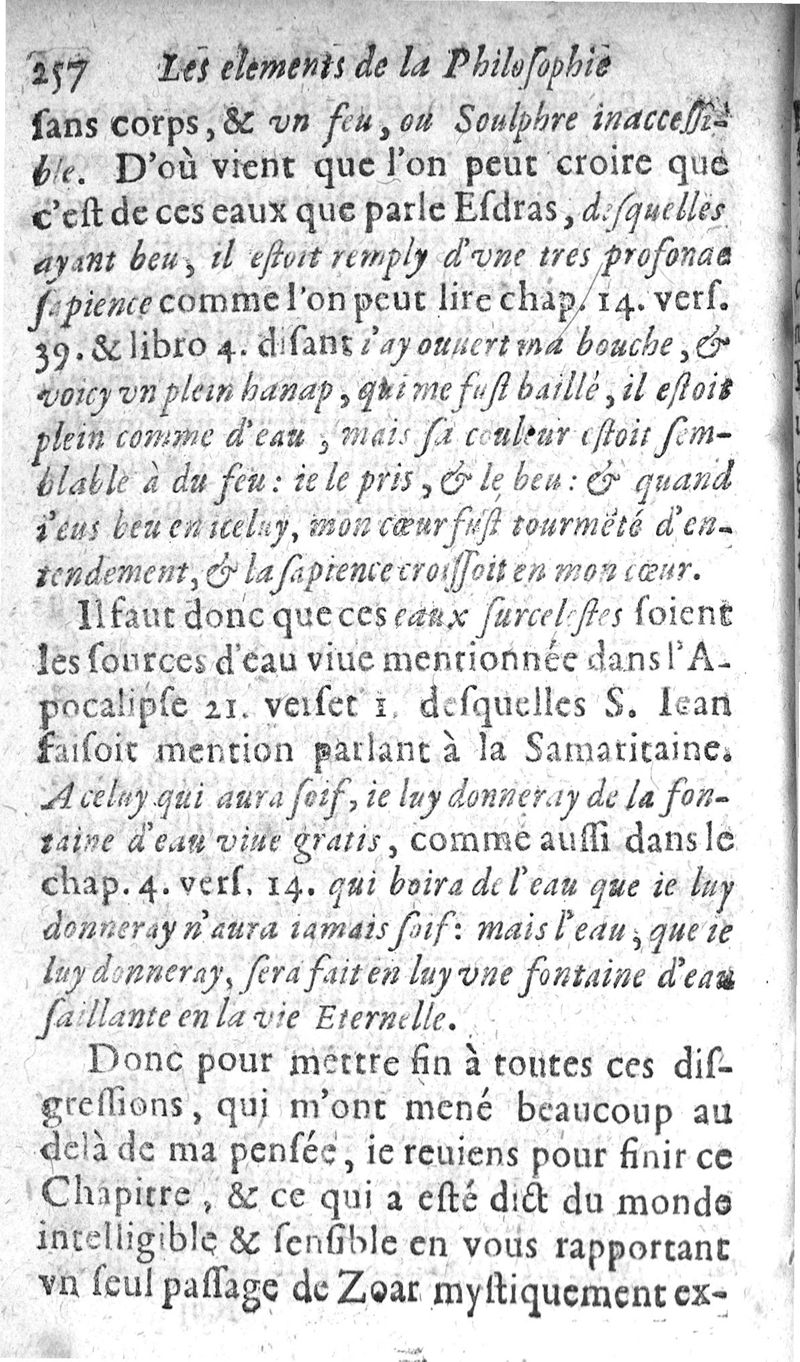 257 Les elements de la Philoſophie
ſans corps, & vn feu, ou Soulphre inacceſſi-
ble. D'où vient que l'on peut croire que
c'eſt de ces eaux que parle Eſdras, deſquelles
ayant beu, il eſtoit remply d'vne tres profonde
ſapience comme l'on peut lire chap. 14. verſ.
39. & libro 4. diſant i'ay ouuert ma bouche, &
voicy vn plein hanap, qui me fuſt baillé, il eſtoit
plein comme d'eau, mais ſa couleur eſtoit ſem-
blable à du feu: ie le pris, & le beu: & quand
i'eus beu en iceluy, mon cœur fuſt tourmēté d'en-
tendement, & la ſapience croiſſoit en mon cœur.
Il faut donc que ces eaux ſurceleſtes ſoient
les ſources d'eau viue mentionnée dans l'A-
pocalipſe 21. verſet 1. deſquelles S. Iean
faiſoit mention parlant à la Samaritaine.
A celuy qui aura ſoif, ie luy donneray de la fon-
taine d'eau viue gratis, comme auſſi dans le
chap. 4. verſ. 14. qui boira de l'eau que ie luy
donneray n'aura iamais ſoif: mais l'eau, que ie
luy donneray, ſera fait en luy vne fontaine d'eau
ſaillante en la vie Eternelle.
Donc pour mettre fin à toutes ces diſ-
greſſions, qui m'ont mené beaucoup au
delà de ma penſée, ie reuiens pour finir ce
Chapitre, & ce qui a eſté dict du monde
intelligible & ſenſible en vous rapportant
vn ſeul paſſage de Zoar myſtiquement ex-